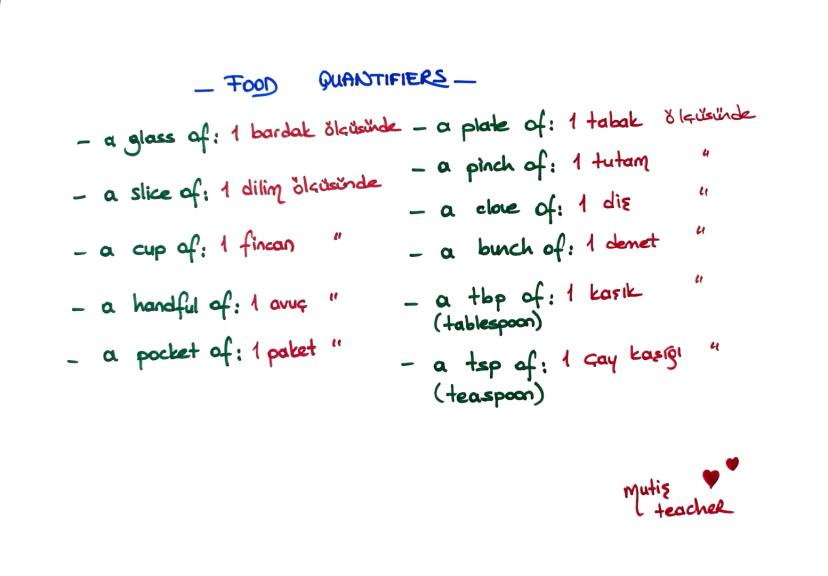 — FOOD QUANTIFIERS —
- a glass of: 1 bardak ölçüsünde
- a slice of: 1 dilim ölçüsünde
- a cup of: 1 fincan "
- a handful of: 1 avuç "
- a pocket of: 1 paket "
- a plate of: 1 tabak ölçüsünde
- a pinch of: 1 tutam "
- a clove of: 1 diş "
- a bunch of: 1 demet "
- a tbp of: 1 kaşık "
(tablespoon)
- a tsp of: 1 çay kaşığı "
(teaspoon)
mutiş
teacher